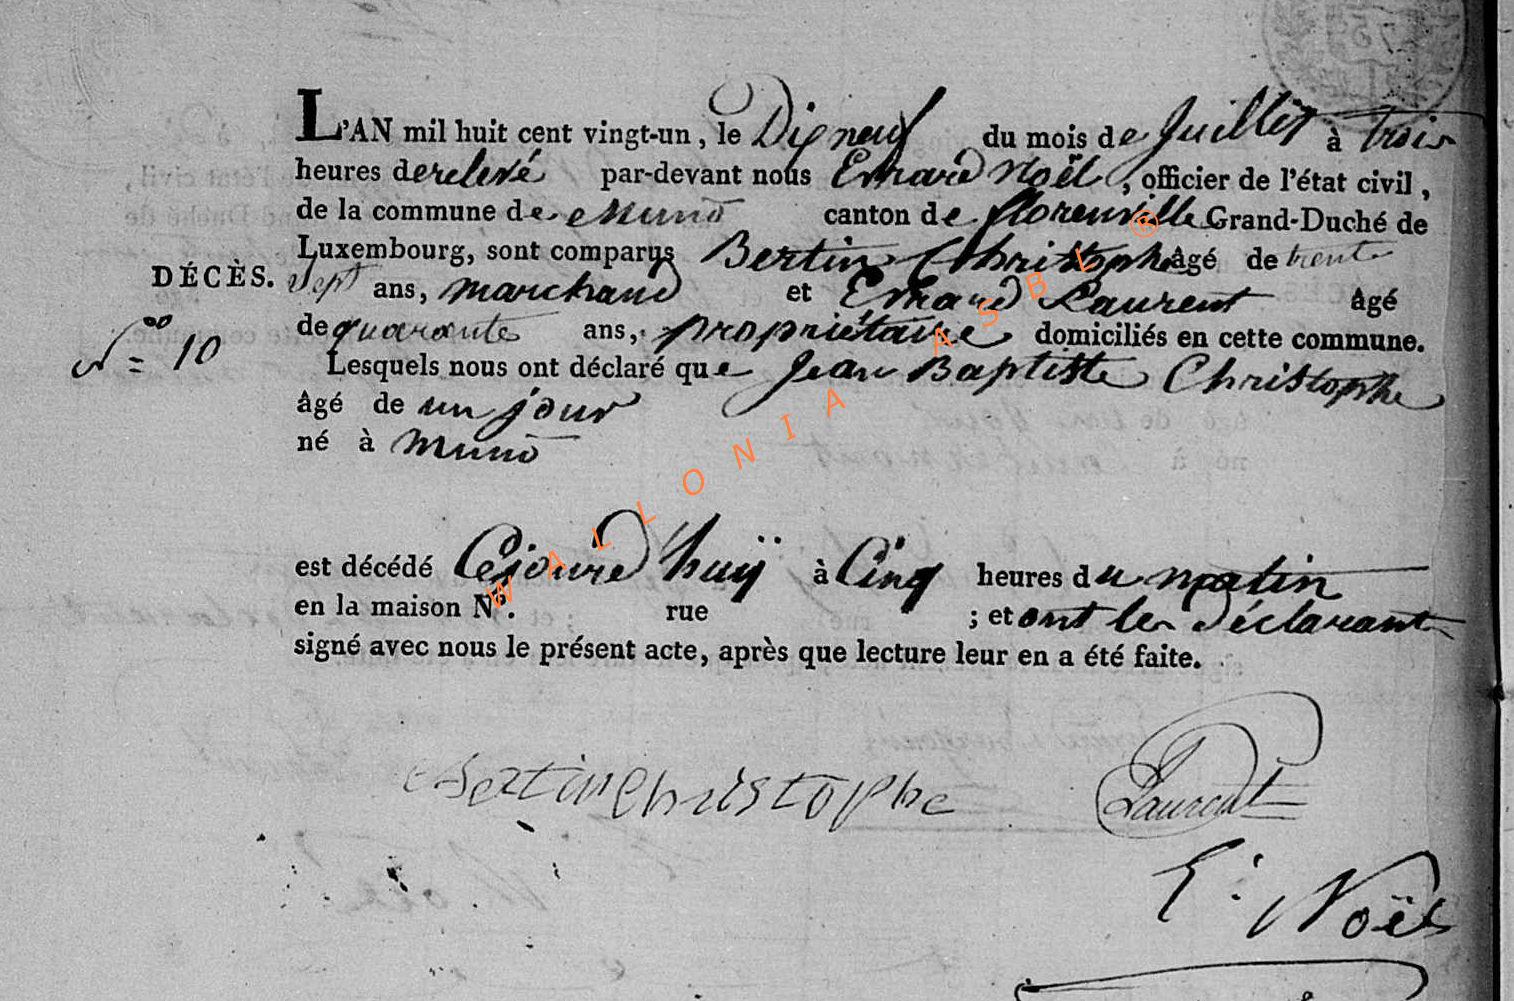 L'AN mil huit cent vingt-un, le Dix neuf du mois de Juillet à trois
heures de relevé par-devant nous Erard Noël, officier de l'état civil,
de la commune de Muno canton de florenville Grand-Duché de
Luxembourg, sont comparus Bertin Christophe âgé de trente
DÉCÈS. Sept ans, marchand et Erard Laurent âgé
N.º = 10 de quarante ans, propriétaire domiciliés en cette commune.
Lesquels nous ont déclaré que Jean Baptiste Christophe
âgé de un jour
né à Muno
est décédé Cejourd'huÿ à Cinq heures du matin
en la maison Nº. rue ; et ont les déclarants
signé avec nous le présent acte, après que lecture leur en a été faite.
Bertin Christophe Laurent
E: Noël
WALLONIA ASBL ®